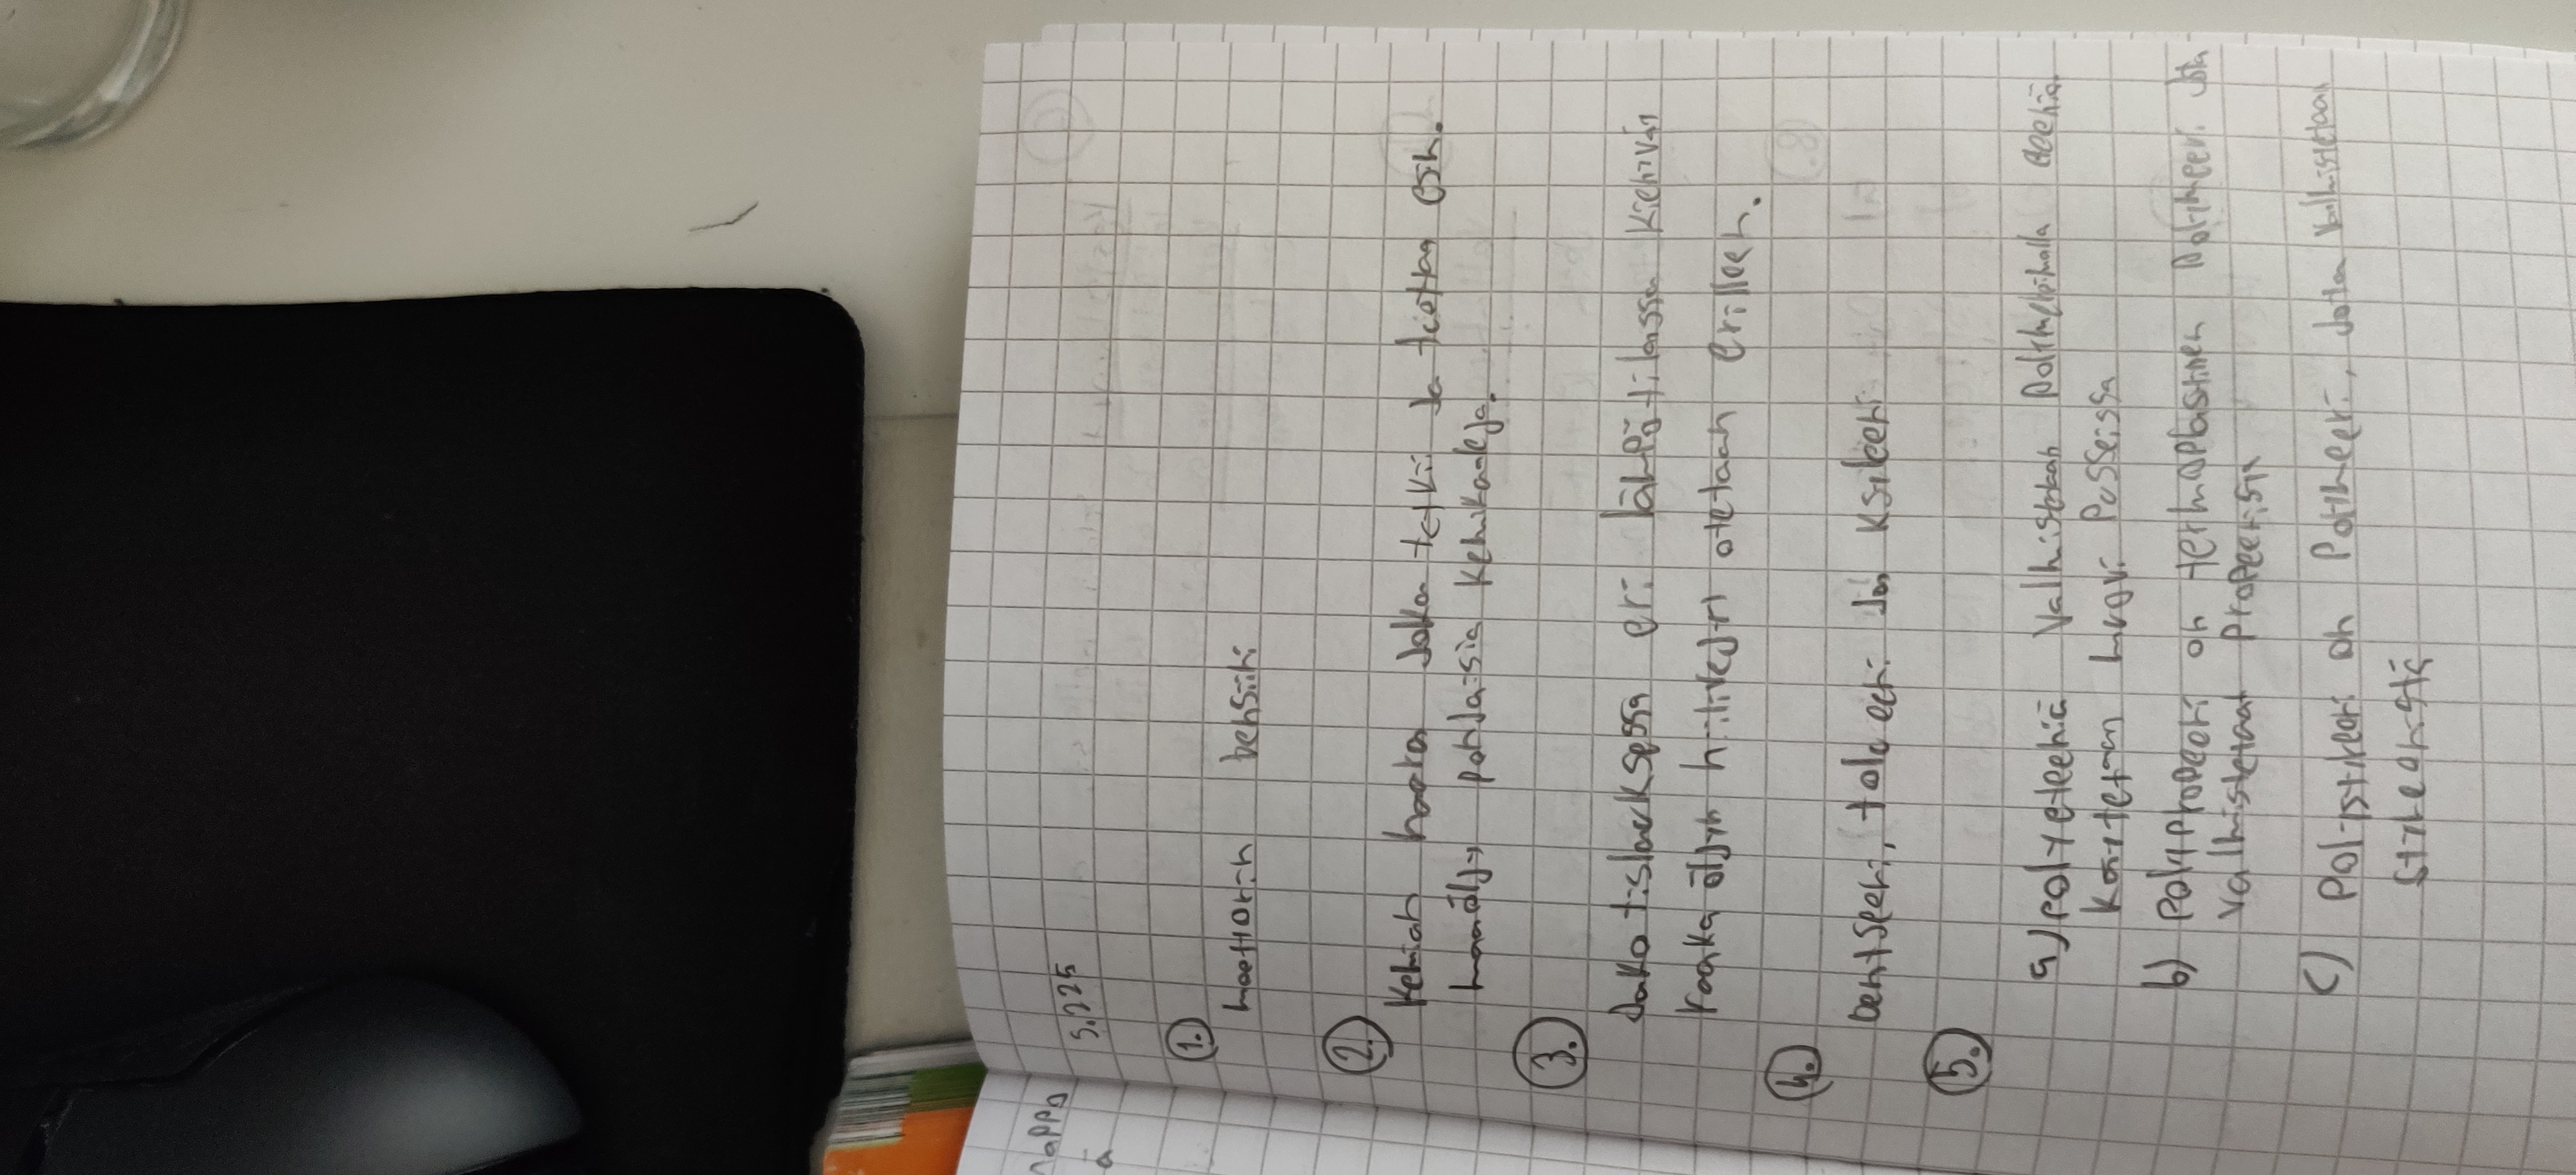 5.2.25
1.
moottorin bensiini
2.
Kemian haara Joka tutkii Ja tuottaa esim.
maaöljy pohjaisia kemikaaleja.
3.
Jakotislauksessa eri lämpötilassa kiehuvan
raakaöljyn hiilivedyt otetaan erilleen.
4.
bentseeni, tolueeni Ja ksileeni
5.
a) polyeteeniä Valmistetaan polymeroimalla eteeniä.
Käytetään muovi Pusseissa
b) Polypropeeni on termoplastinen Polymeeri Jota
Valmistetaan Propeenista
c) Polystyreeni on Polymeeri, Jota Valmistetaan
styreenistä